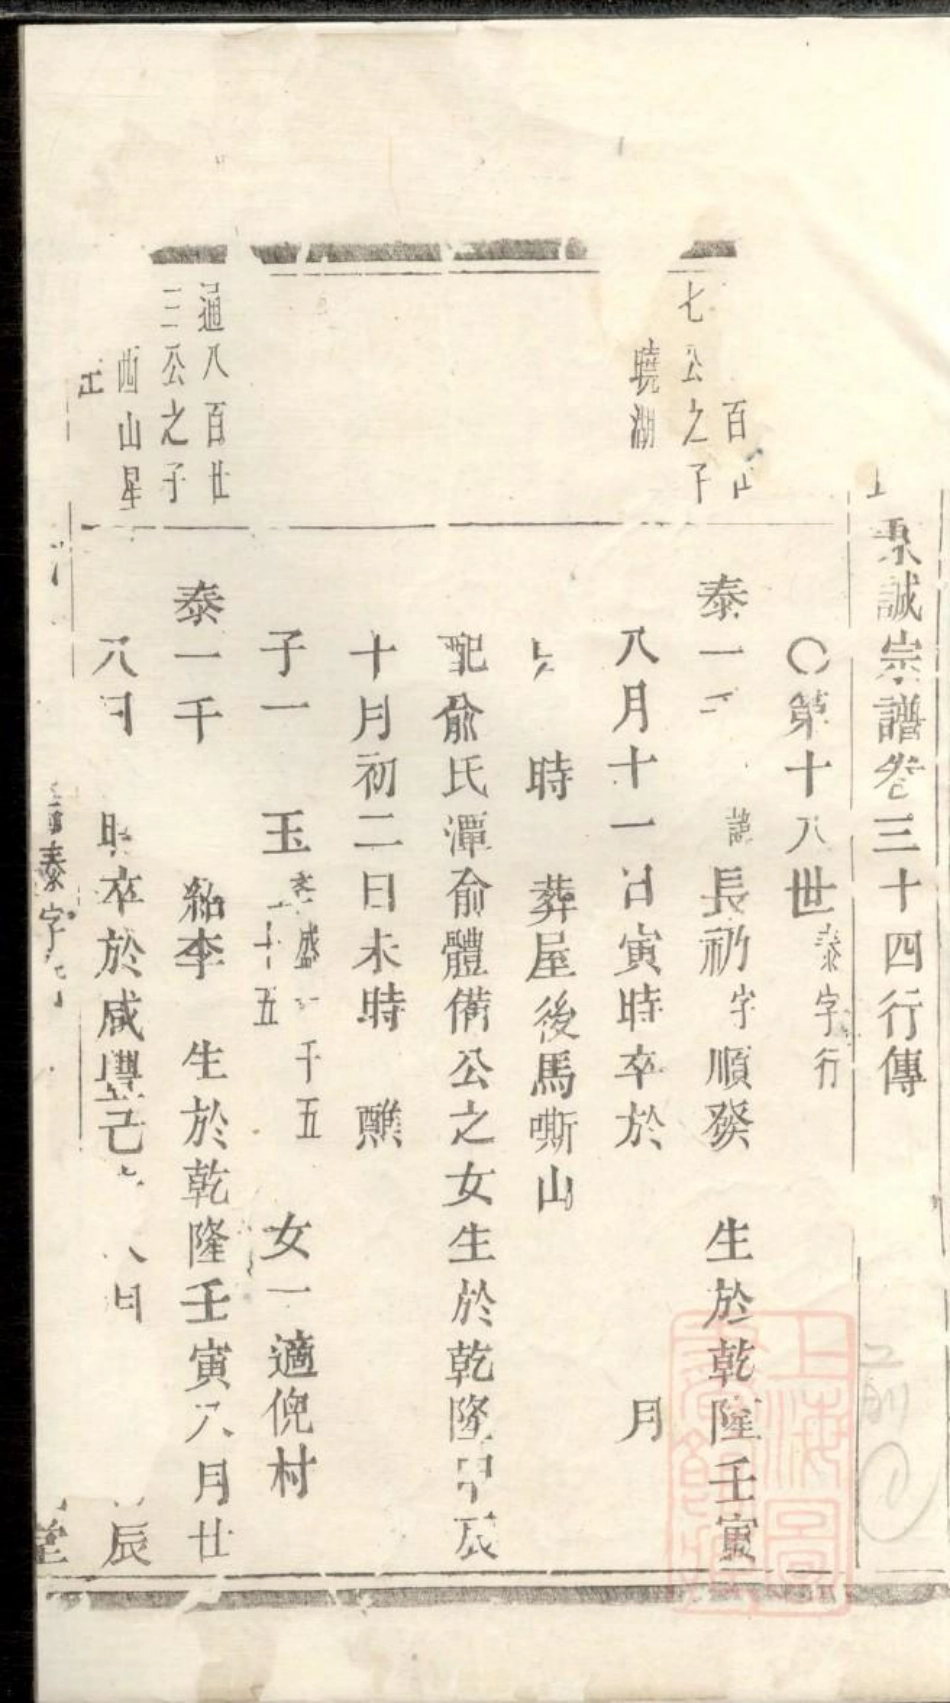 誠宗譜卷三十四行傳
〇第十八世泰字行
百
七公之子
曉湖
泰一 長礽字順發 生於乾隆壬寅
八月十一日寅時卒於 月
時 葬屋後馬嘶山
配俞氏潭俞體備公之女生於乾隆甲辰
十月初二日未時 醮
子一 玉 盛 千五 十五 女一適倪村
通八百廿
三公之子
西山星
泰一千 紿李 生於乾隆壬寅八月廿
八日 時卒於咸豐 月 辰
泰字
堂
上海圖書館藏